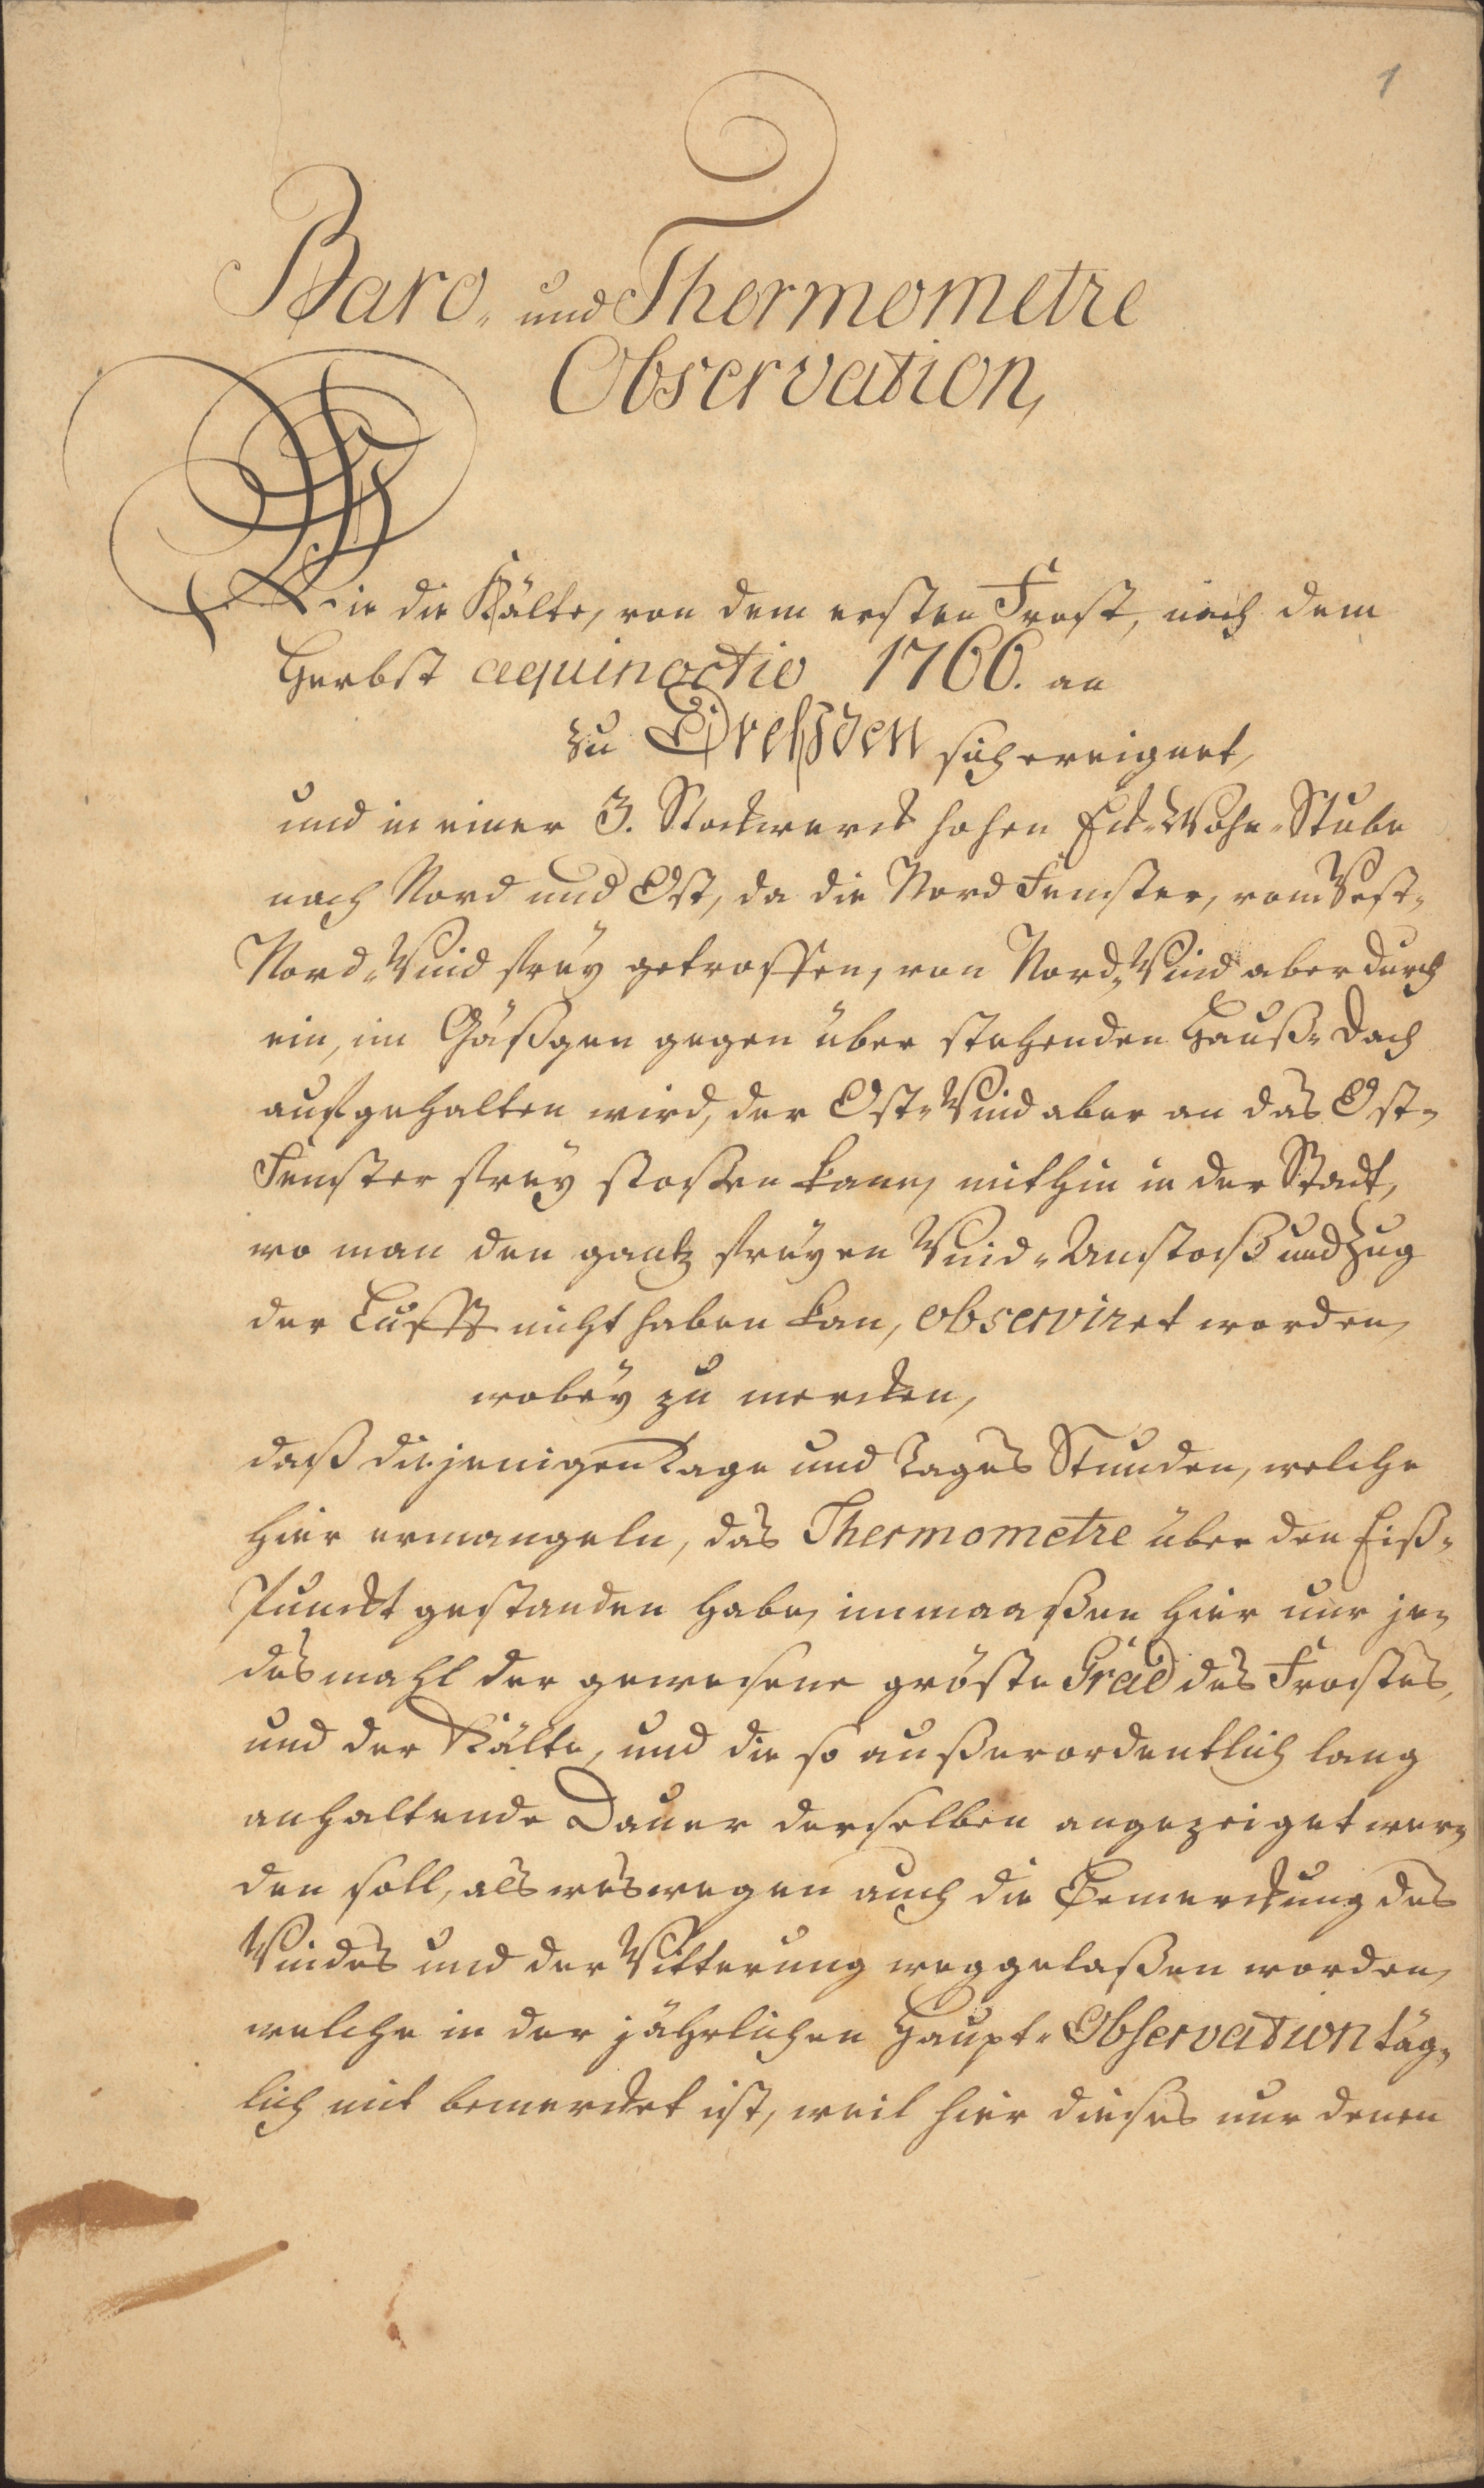 1
Baro- und Thermometre
Observation,
Wie die Kälte, von dem ersten Frost, nach dem
Herbst aequinoctio 1766. an
zu Dreßden sich ereignet,
und in einer 3. Stockwerck hohen Eck-Wohn-Stube
nach Nord und Ost, da die Nord Fenster, vom West-
Nord-Wind freÿ getroffen, von Nord-Wind aber durch
ein, im Gäßgen gegen über stehenden Hauß-Dach
aufgehalten wird, der Ost-Wind aber an das Ost-
Fenster freÿ stoßen kann, mithin in der Stadt,
wo man den gantz freÿen Wind-Anstoß und Zug
der Lufft nicht haben kan, observiret worden,
wobeÿ zu mercken,
daß diejenigen Tage und Tages Stunden, welche
hier ermangeln, das Thermometre über den Eiß-
Punckt gestanden habe, immaaßen hier nur je-
desmahl der gewesene gröste Grad des Frostes,
und der Kälte, und die so außerordentlich lang
anhaltende Dauer derselben angezeiget wer-
den soll, als weswegen auch die Bemerckung des
Windes und der Witterung weggelaßen worden,
welche in der jährlichen Haupt-Observation täg-
lich mit bemercket ist, weil hier dieses nur denen